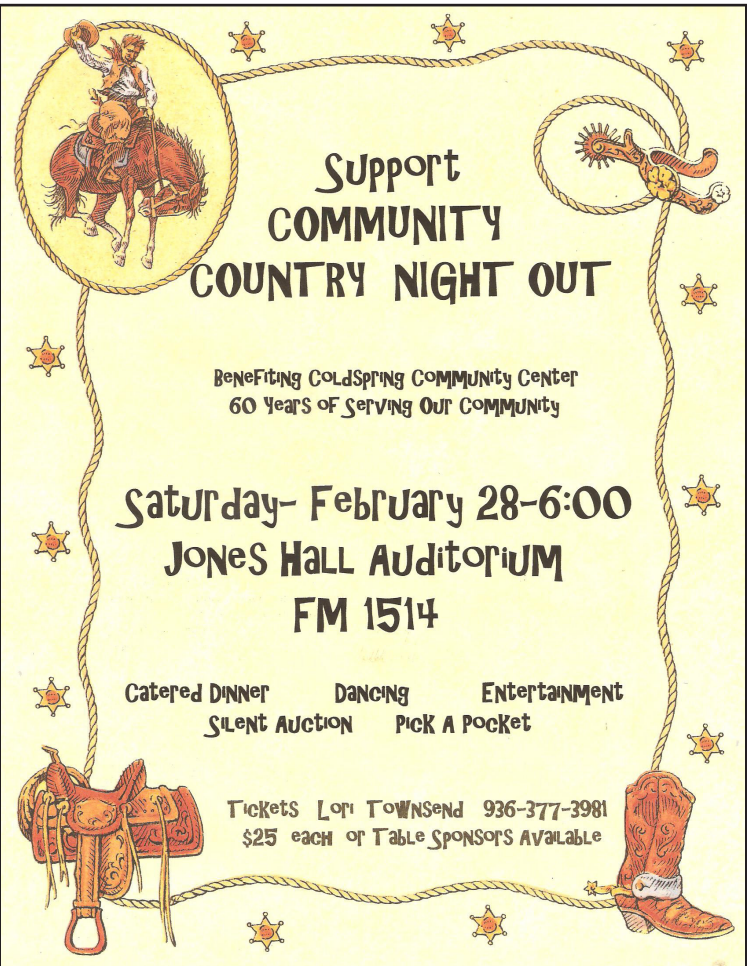 Support
COMMUNITY
COUNTRY NIGHT OUT
Benefiting Coldspring Community Center
60 Years of Serving Our Community
Saturday- February 28-6:00
Jones Hall Auditorium
FM 1514
Catered Dinner Dancing Entertainment
Silent Auction Pick A Pocket
Tickets Lori Townsend 936-377-3981
$25 each or Table Sponsors Available